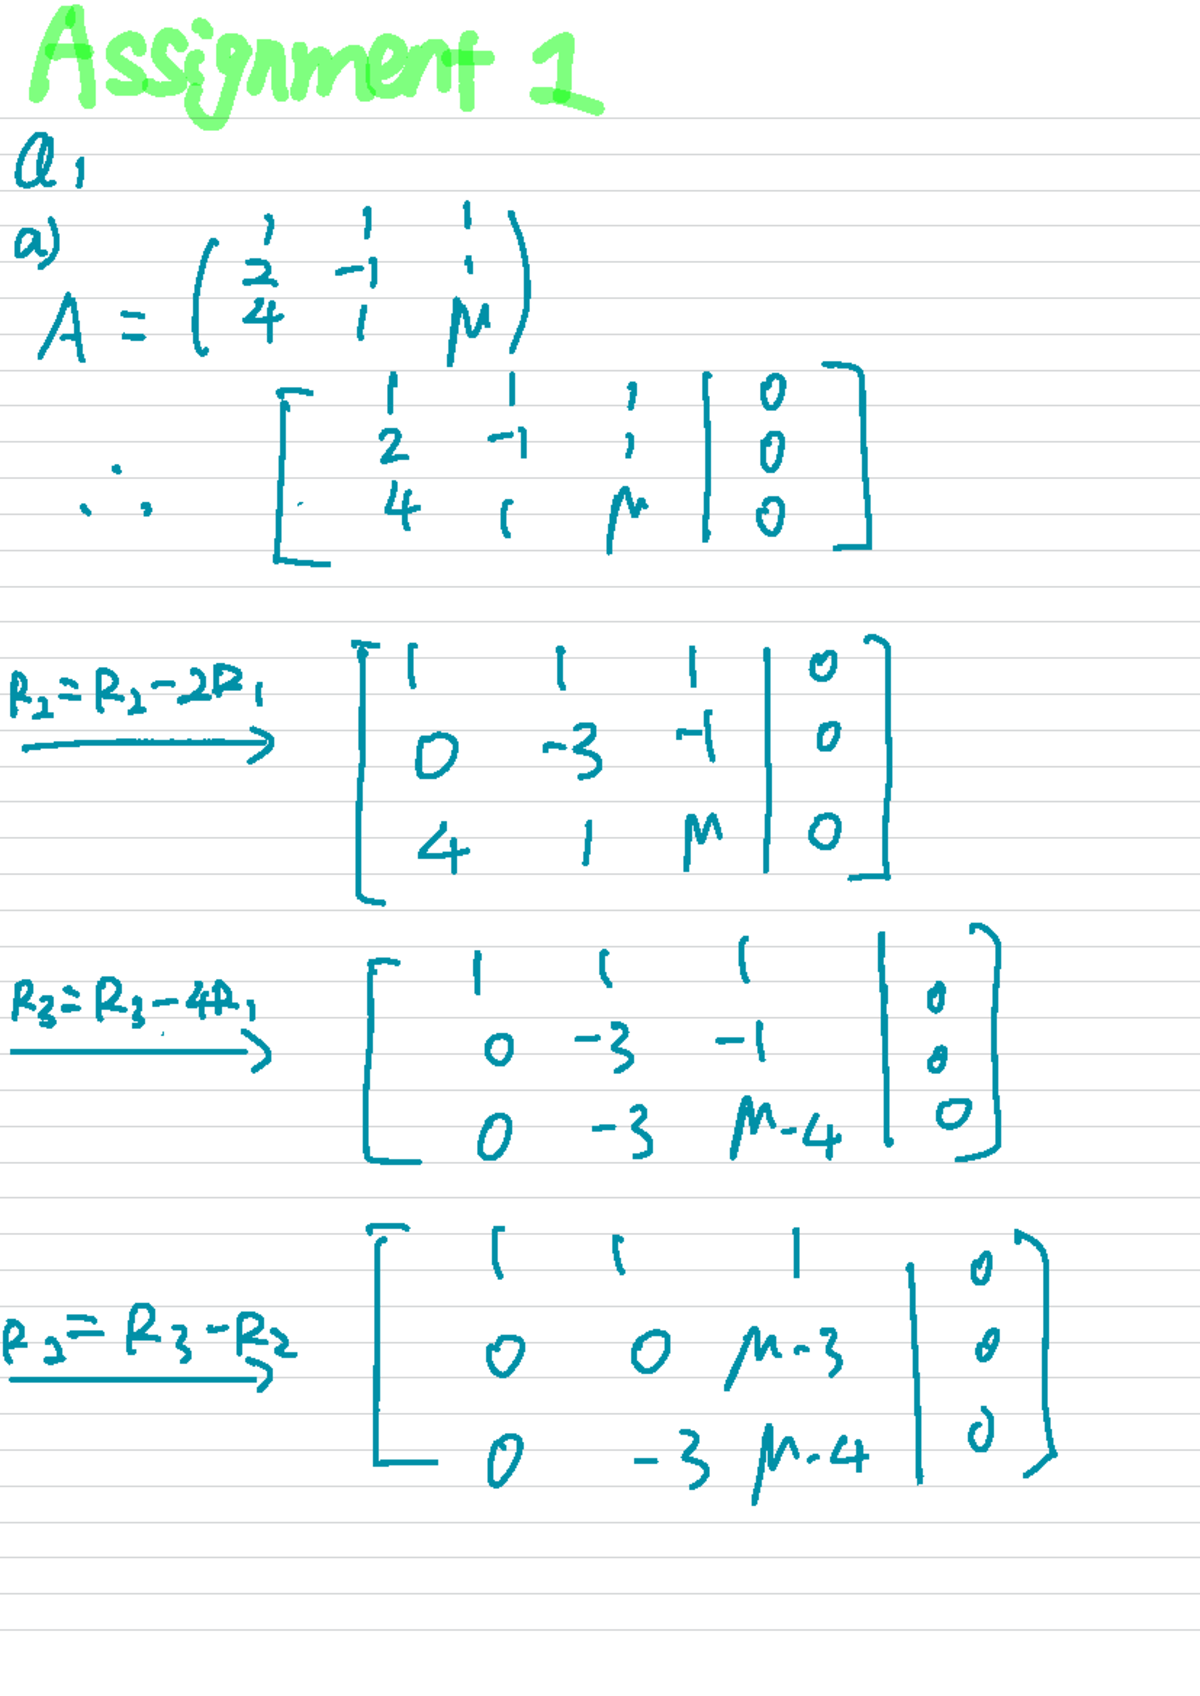 Assignment 1
Q1
a)
A = ( 1 1 1
2 -1 1
4 1 μ )
∴ [ 1 1 1 | 0 ]
2 -1 1 | 0
4 1 μ | 0
R2=R2-2R1
1 1 1 | 0
0 -3 -1 | 0
4 1 μ | 0
R3=R3-4R1
1 1 1 | 0
0 -3 -1 | 0
0 -3 μ-4 | 0
R2=R3-R2
1 1 1 | 0
0 0 μ-3 | 0
0 -3 μ-4 | 0